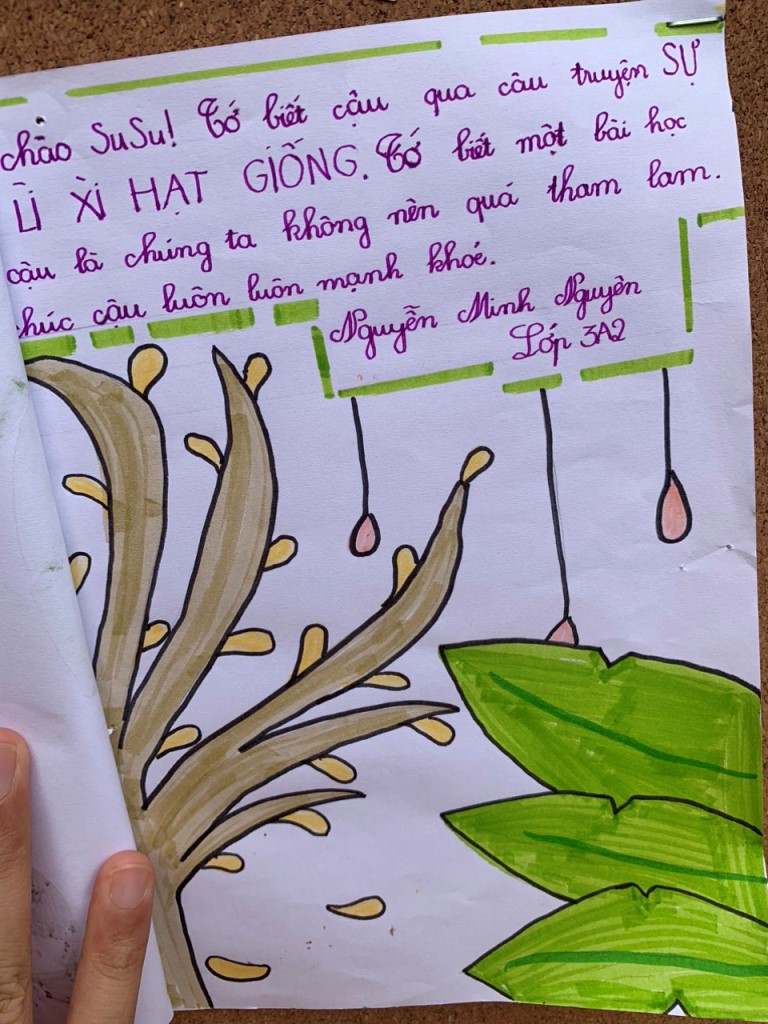 chào SuSu! Tớ biết cậu qua câu truyện SỰ
LÌ XÌ HẠT GIỐNG. Tớ biết một bài học
cậu là chúng ta không nên quá tham lam.
chúc cậu luôn luôn mạnh khoẻ.
Nguyễn Minh Nguyên
Lớp 3A2